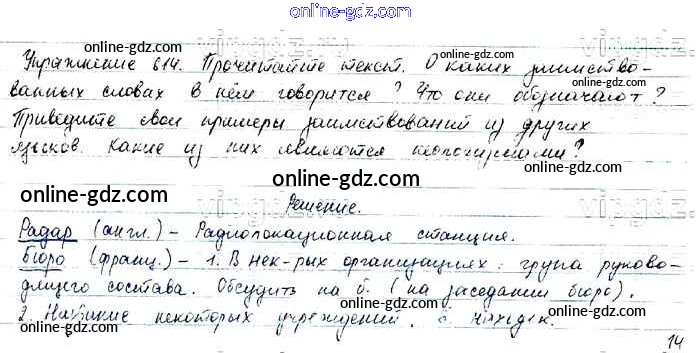 online-gdz.com
Упражнение 614. Прочитайте текст. О каких заимство-
ванных словах в нём говорится? Что они обозначают?
Приведите свои примеры заимствований из других
языков. Какие из них являются неологизмами?
online-gdz.com
Решение.
Радар (англ.) – Радиолокационная станция.
Бюро (франц.) – 1. В нек-рых организациях: група руково-
дящего состава. Обсудить на б. (на заседании бюро).
2. Название некоторых учреждений. Б. находок.
14
online-gdz.com